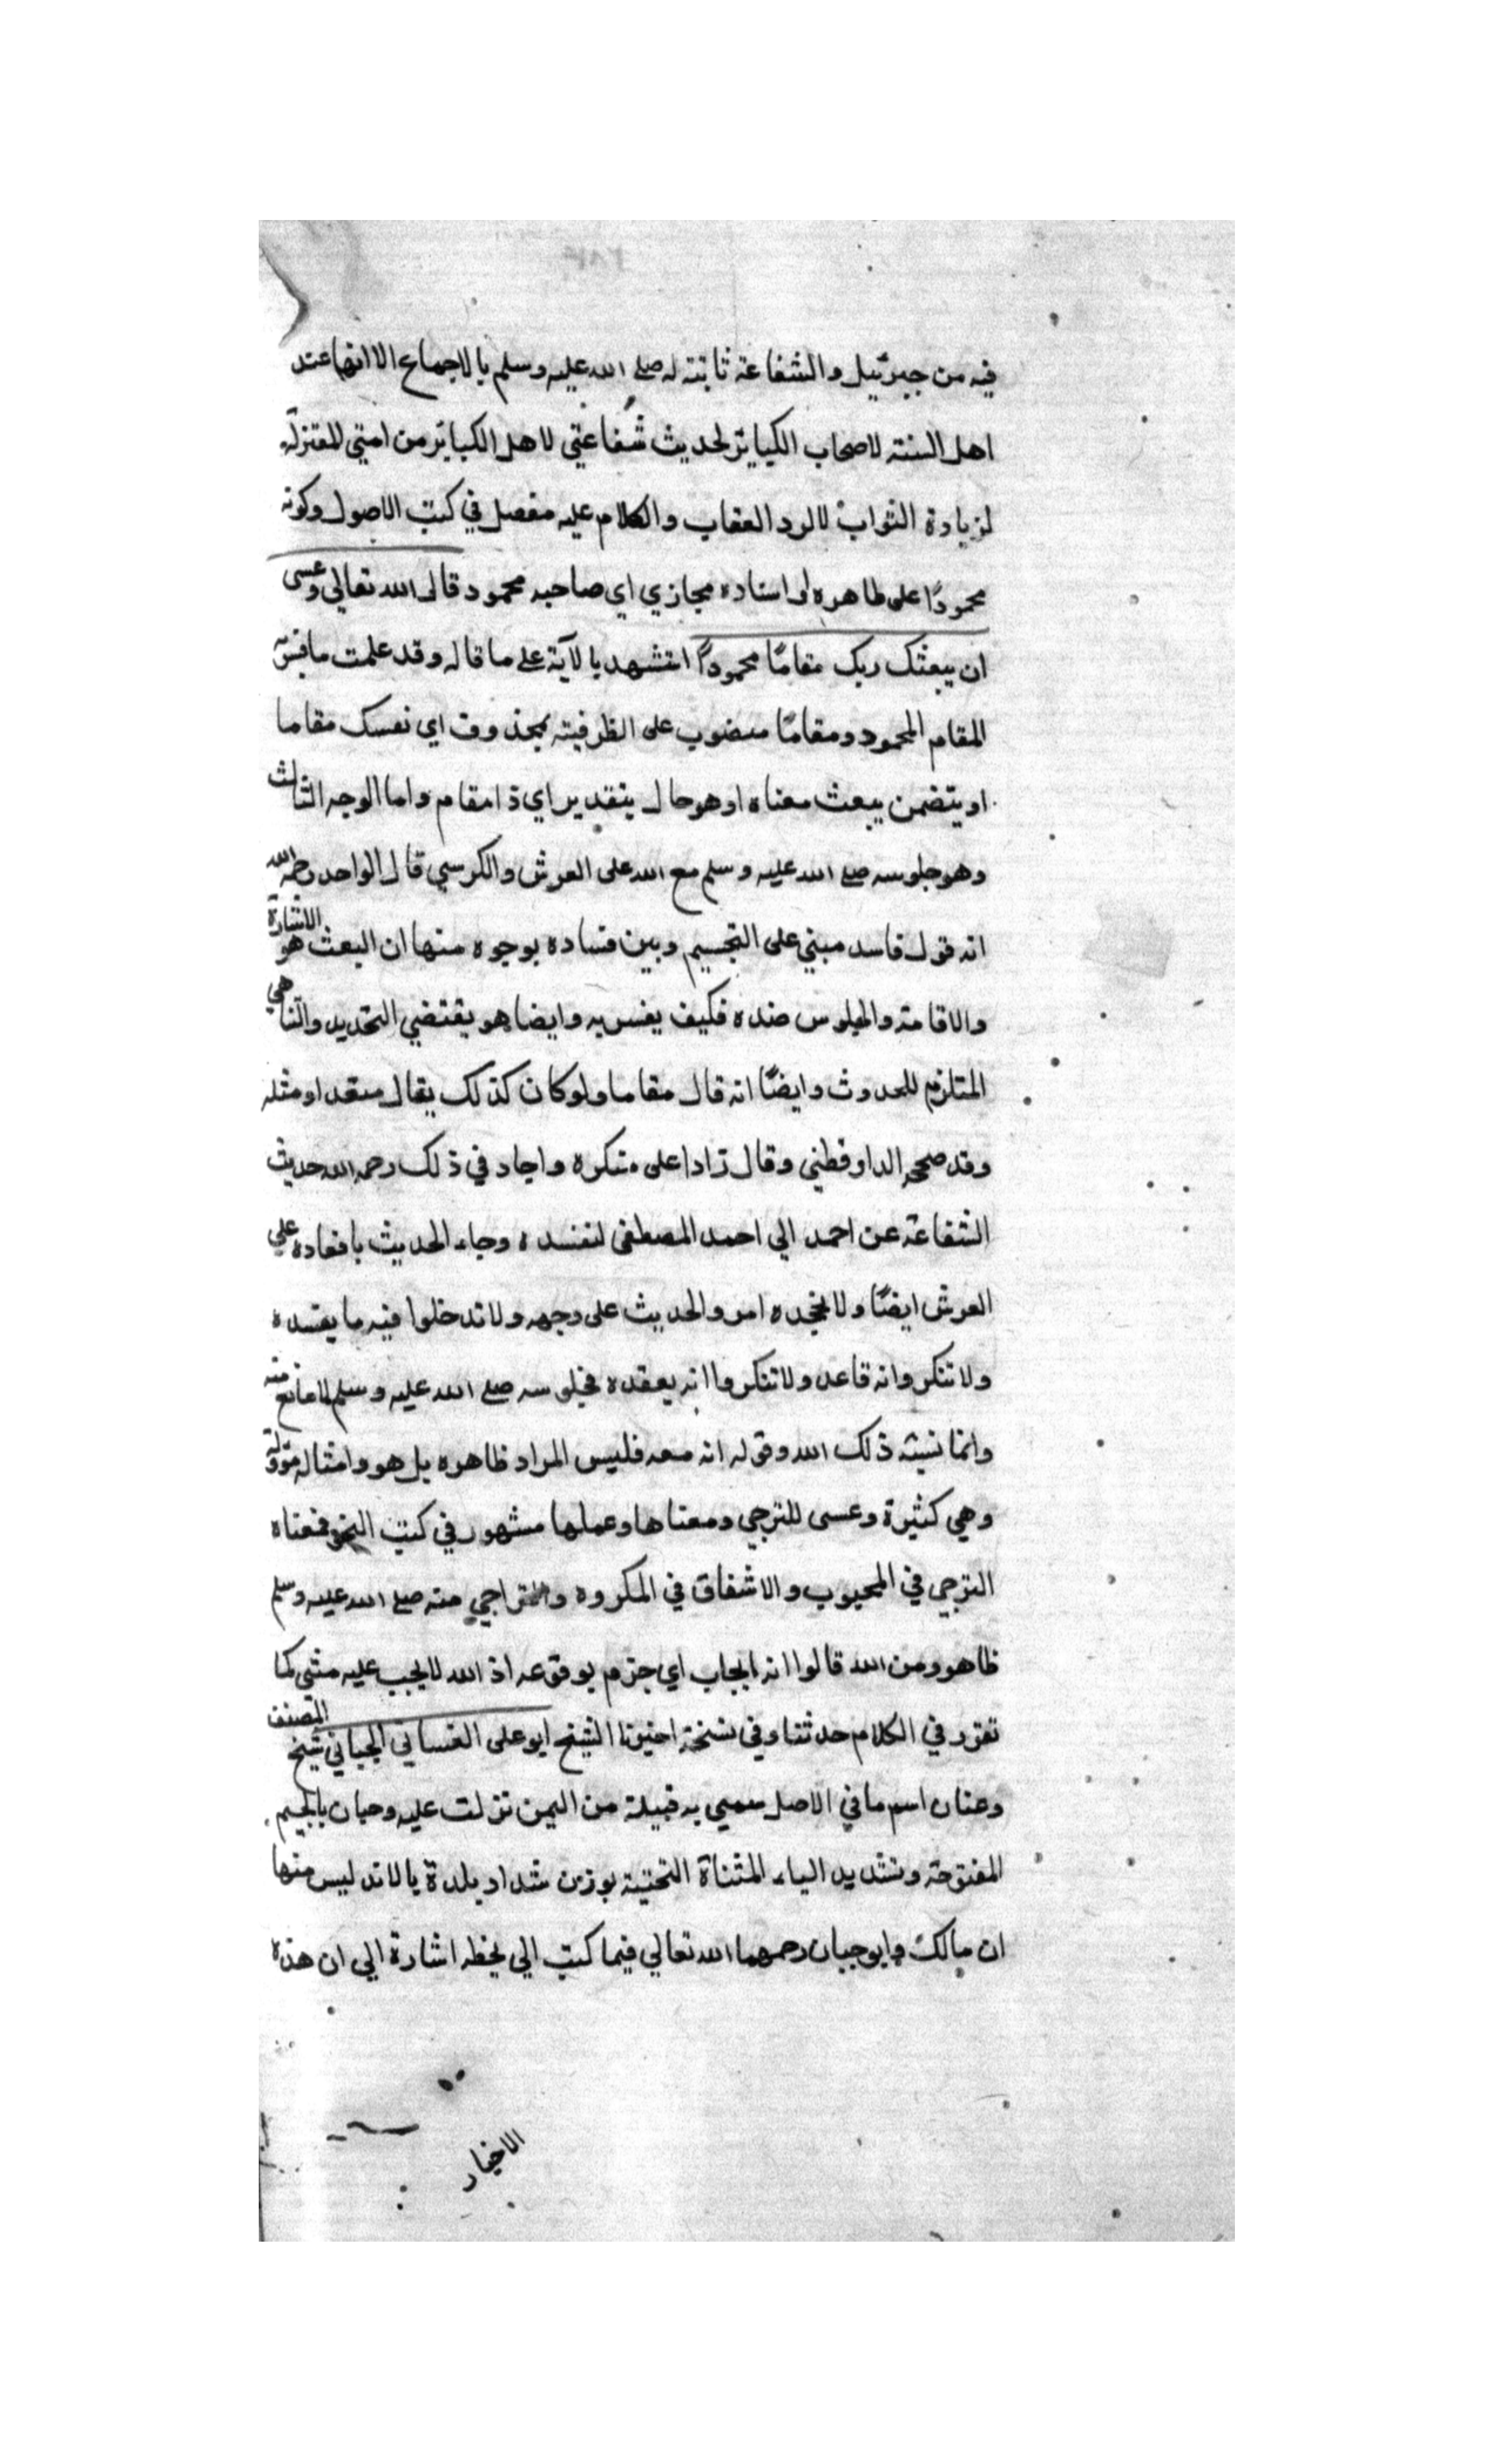 فيه من جبرئيل والشفاعة ثابتة له صلى الله عليه وسلم بالاجماع الا انها عند
اهل السنة لاصحاب الكبائر لحديث شفاعتي لاهل الكبائر من امتي للمعتزلة
لزيادة الثواب لا لرد العقاب والكلام عليه مفصل في كتب الاصول وكونه
محمودًا على ظاهره او اسناده مجازي اي صاحبه محمود قال الله تعالى وعسى
ان يبعثك ربك مقامًا محمودًا استشهد بالآية على ما قاله وقد علمت ما فسر
المقام المحمود ومقامًا منصوب على الظرفية بمحذوف اي نفسك مقاما
او يتضمن يبعث معناه او هو حال بتقدير اي ذا مقام واما الوجه الثالث
وهو جلوسه صلى الله عليه وسلم مع الله على العرش والكرسي قال الواحدي رحمه الله
انه قول فاسد مبني على التجسيم وبين فساده بوجوه منها ان البعث هو الاشارة
والاقامة والجلوس ضده فكيف يفسر به وايضا هو يقتضي التحديد والتناهي
المتلزم للحدوث وايضًا انه قال مقاما ولو كان كذلك يقال مقعد او مثله
وقد صححه الدارقطني وقال رادا على منكره واجاد في ذلك رحمه الله حديث
الشفاعة عن احمد الي احمد المصطفى لنفنسده وجاء الحديث باقعاده علي
العرش ايضًا ولا نجحده امر والحديث على وجهه ولا تدخلوا فيه ما يفسده
ولا تنكروا نه قاعد ولا تنكروا انه يعقده فجلوسه صلى الله عليه وسلم لا مانع منه
وانما نسبته ذلك الله وقوله انه معه فليس المراد ظاهره بل هو وامثاله مؤولة
وهي كثيرة وعسى للترجي ومعناها وعملها مشهور في كتب النحو فمعناه
الترجي في المحبوب والاشفاق في المكروه والتراجي منه صلى الله عليه وسلم
ظاهر ومن الله قالوا انه ايجاب اي جزم بوقوعه اذ الله لا يجب عليه شئ كما
تقرر في الكلام حدثنا وفي نسخة اخبرنا الشيخ ابو على الغساني الجياني شيخ المصنف
وعنان اسم ما في الاصل سمي به قبيلة من اليمن نزلت عليه وحبان بالجيم
المفتوحة وتشديد الياء المثناة التحتية بوزن شداد بلدة بالاندليس منها
ان مالك وابو حبان رحمهما الله تعالي فيما كتب الي بخطه اشارة الي ان هذه
الاخبار